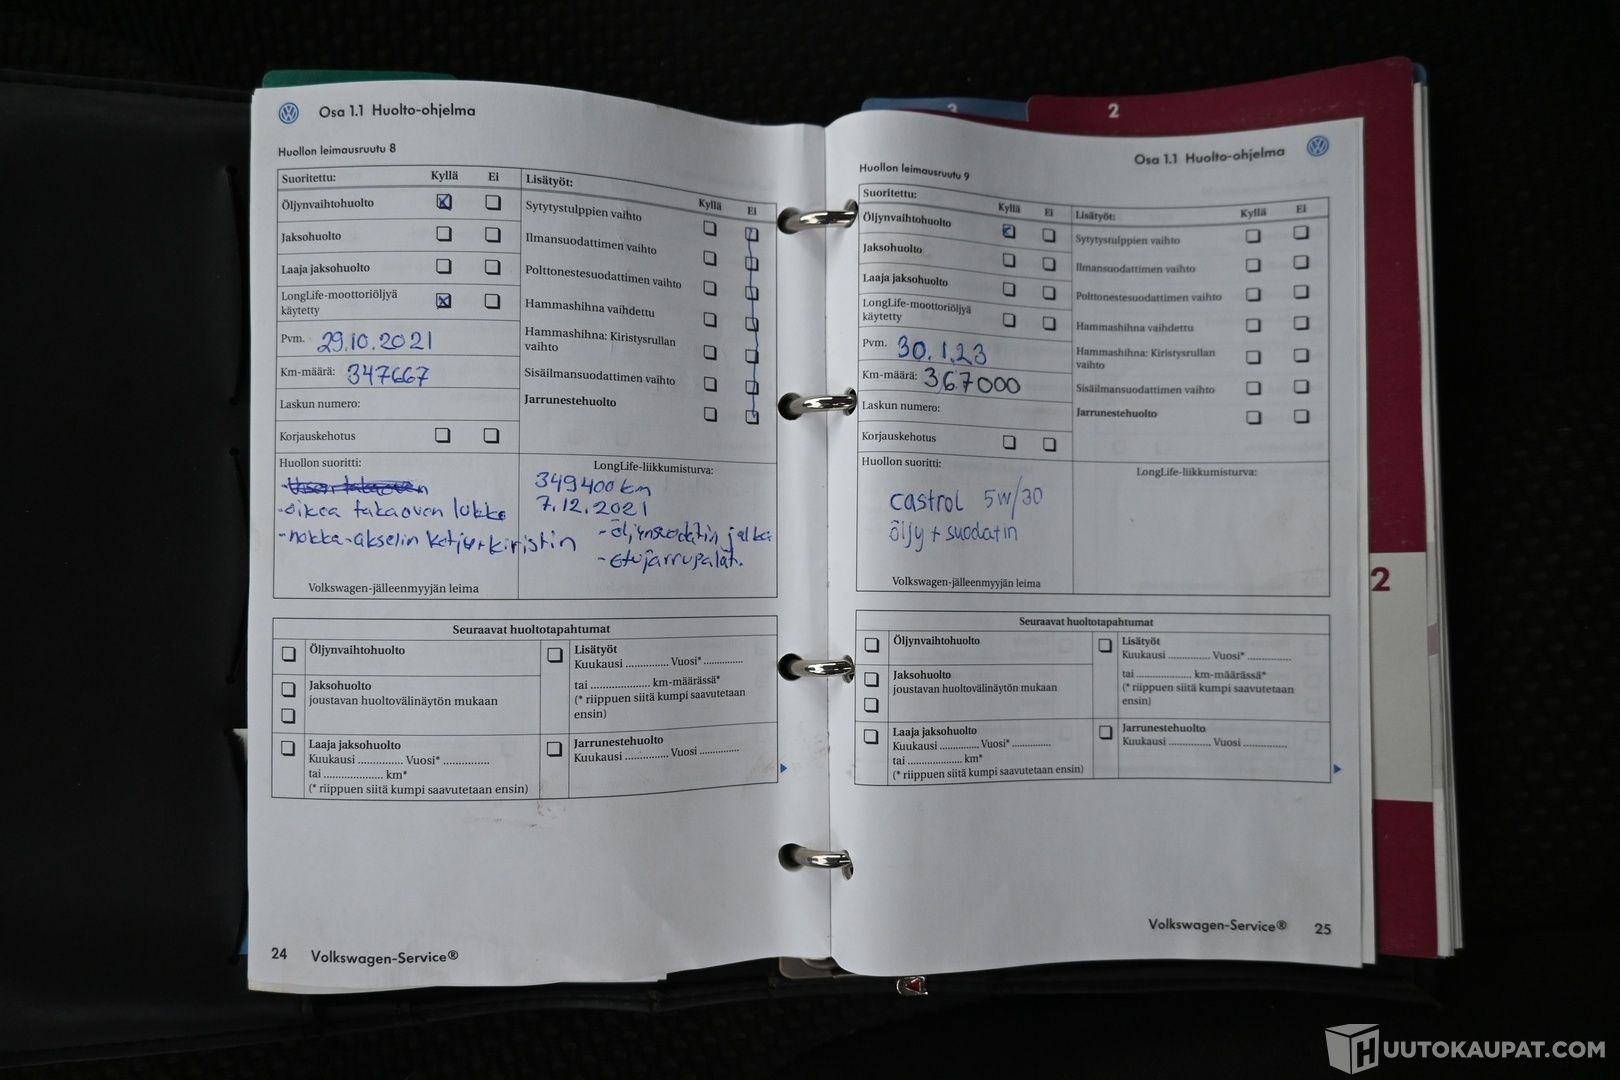 Osa 1.1 Huolto-ohjelma
Huollon leimausruutu 8
Suoritettu: Kyllä Ei
Öljynvaihtohuolto
Jaksohuolto
Laaja jaksohuolto
LongLife-moottoriöljyä
käytetty
Pvm. 29.10.2021
Km-määrä: 347667
Laskun numero:
Korjauskehotus
Lisätyöt: Kyllä Ei
Sytytystulppien vaihto
Ilmansuodattimen vaihto
Polttonestesuodattimen vaihto
Hammashihna vaihdettu
Hammashihna: Kiristysrullan
vaihto
Sisäilmansuodattimen vaihto
Jarrunestehuolto
Huollon suoritti:
-oikea takaoven lukko
-nokka-akselin ketju+kiristin
Volkswagen-jälleenmyyjän leima
LongLife-liikkumisturva:
349400km
7.12.2021
-öljynsuodatin jalka
-etujarrupalat.
Seuraavat huoltotapahtumat
Öljynvaihtohuolto
Jaksohuolto
joustavan huoltovälinäytön mukaan
Laaja jaksohuolto
Kuukausi .............. Vuosi* ..............
tai .................... km*
(* riippuen siitä kumpi saavutetaan ensin)
Lisätyöt
Kuukausi .............. Vuosi* ..............
tai .................... km-määrässä*
(* riippuen siitä kumpi saavutetaan
ensin)
Jarrunestehuolto
Kuukausi .............. Vuosi ..............
24 Volkswagen-Service®
3
2
Osa 1.1 Huolto-ohjelma
Huollon leimausruutu 9
Suoritettu: Kyllä Ei
Öljynvaihtohuolto
Jaksohuolto
Laaja jaksohuolto
LongLife-moottoriöljyä
käytetty
Pvm. 30.1.23
Km-määrä: 367000
Laskun numero:
Korjauskehotus
Lisätyöt: Kyllä Ei
Sytytystulppien vaihto
Ilmansuodattimen vaihto
Polttonestesuodattimen vaihto
Hammashihna vaihdettu
Hammashihna: Kiristysrullan
vaihto
Sisäilmansuodattimen vaihto
Jarrunestehuolto
Huollon suoritti:
castrol 5w/30
öljy + suodatin
Volkswagen-jälleenmyyjän leima
LongLife-liikkumisturva:
2
Seuraavat huoltotapahtumat
Öljynvaihtohuolto
Jaksohuolto
joustavan huoltovälinäytön mukaan
Laaja jaksohuolto
Kuukausi .............. Vuosi* ..............
tai .................... km*
(* riippuen siitä kumpi saavutetaan ensin)
Lisätyöt
Kuukausi .............. Vuosi* ..............
tai .................... km-määrässä*
(* riippuen siitä kumpi saavutetaan
ensin)
Jarrunestehuolto
Kuukausi .............. Vuosi ..............
Volkswagen-Service® 25
HUUTOKAUPAT.COM